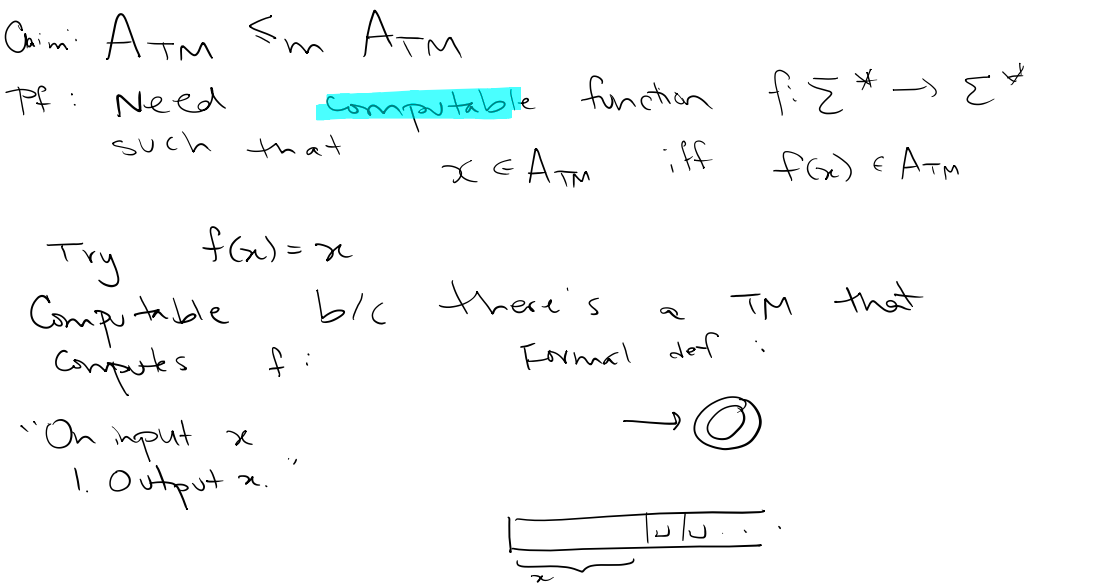 Claim: A_TM ≤_m A_TM
Pf: Need computable function f: Σ* → Σ*
such that
x ∈ A_TM iff f(x) ∈ A_TM
Try f(x) = x
Computable b/c there's a TM that
computes f: Formal def:
"On input x
1. Output x."
␣ ␣ . . .
x